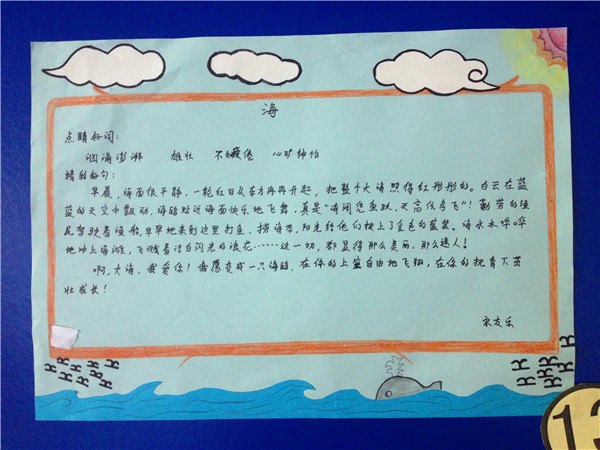 海
点睛好词:
汹涌澎湃 雄壮 不知疲倦 心旷神怡
精彩好句:
早晨,海面很平静,一轮红日从东方冉冉升起,把整个大海照得红彤彤的。白云在蓝
蓝的天空中飘动,海鸥贴近海面快乐地飞舞,真是“海阔凭鱼跃,天高任鸟飞”!勤劳的渔
民驾驶着渔船,早早地来到这里打鱼、捞海带,阳光给他们披上了金色的蓝装。海水哗哗
地冲上海滩,飞溅着洁白闪光的浪花……这一切,都显得那么美丽,那么迷人!
啊,大海,我爱你!我愿变成一只海鸥,在你的上空自由地飞翔,在你的抚育下茁
壮成长!
宋友乐
13